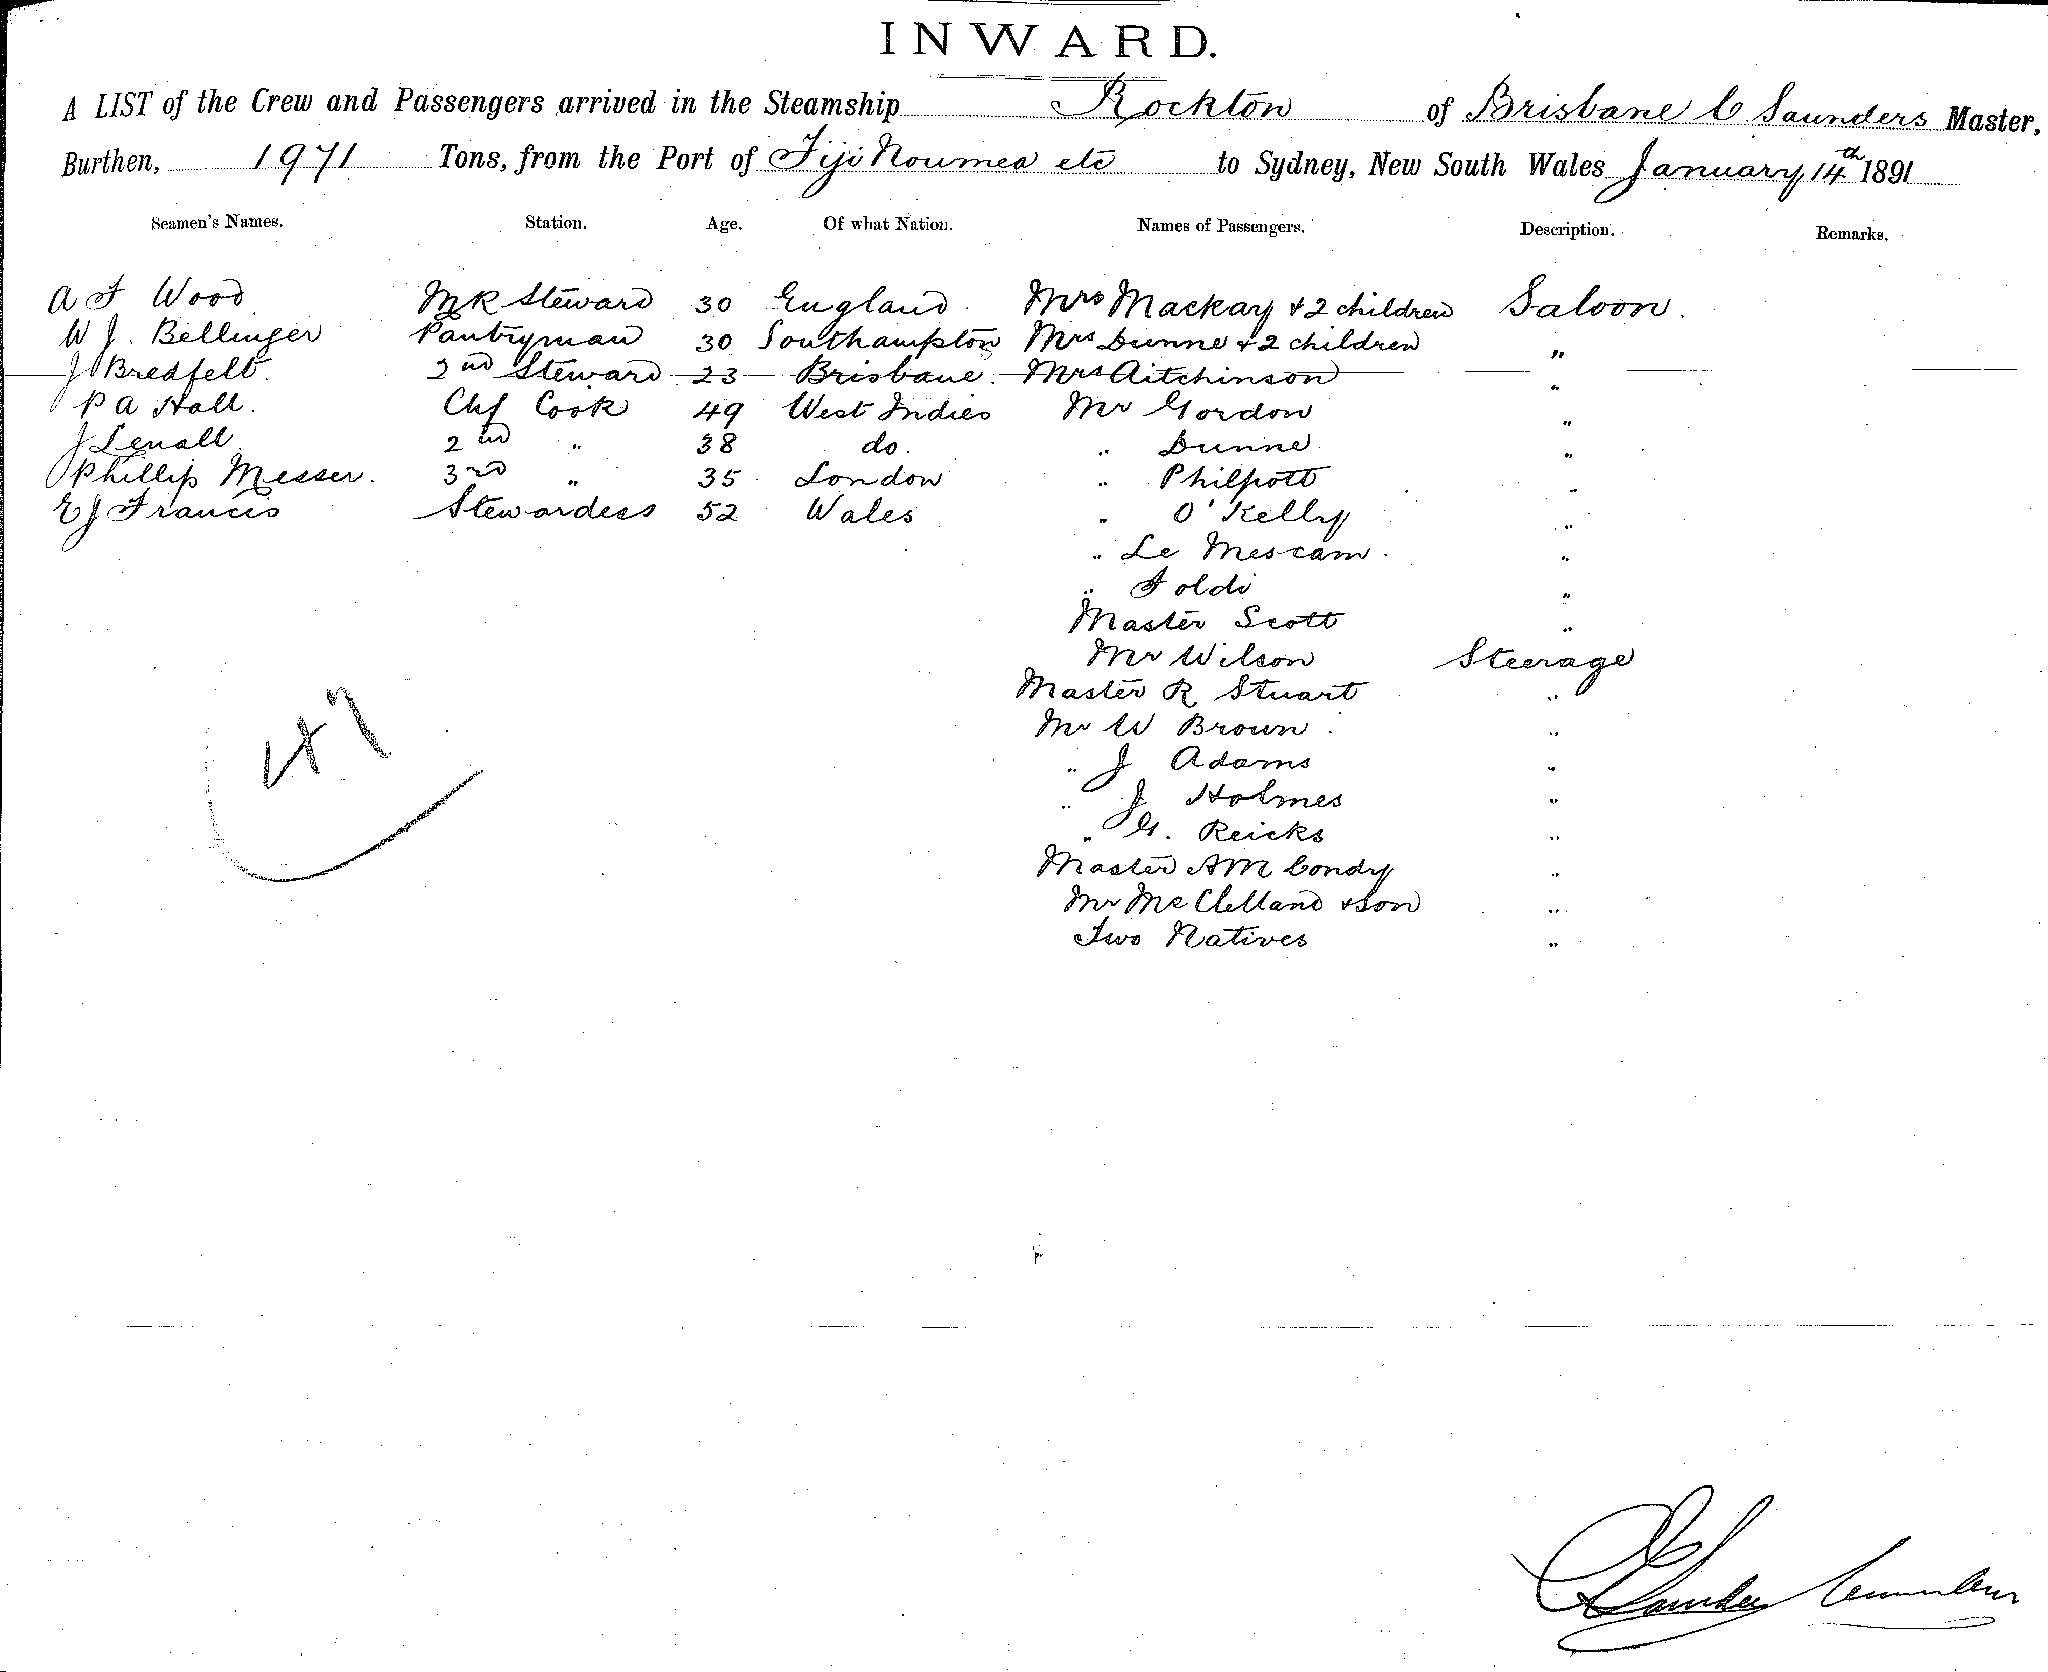 INWARD.
A LIST of the Crew and Passengers arrived in the Steamship Rockton of Brisbane C Saunders Master,
Burthen, 1971 Tons, from the Port of Fiji Noumea etc to Sydney, New South Wales January 14th 1891
Seamen's Names. Station. Age. Of what Nation. Names of Passengers. Description. Remarks.
A F Wood MR Steward 30 England Mrs Mackay + 2 children Saloon.
W J. Bellinger Pantryman 30 Southampton Mrs Dunne + 2 children "
J Bredfelt. 2nd Steward 23 Brisbane. Mrs Aitchinson "
P A Hall. Chf Cook 49 West Indies Mr Gordon "
J Lenall 2nd " 38 do. " Dunne "
Phillip Messer. 3rd " 35 London " Philpott "
E J Francis Stewardess 52 Wales " O'Kelly "
" Le Mescam. "
" Foldi "
Master Scott "
Mr Wilson Steerage
Master R Stuart "
Mr W Brown. "
" J Adams "
" J Holmes "
" G. Reicks "
Master AM Condy "
Mr McClelland + son "
Two Natives "
47